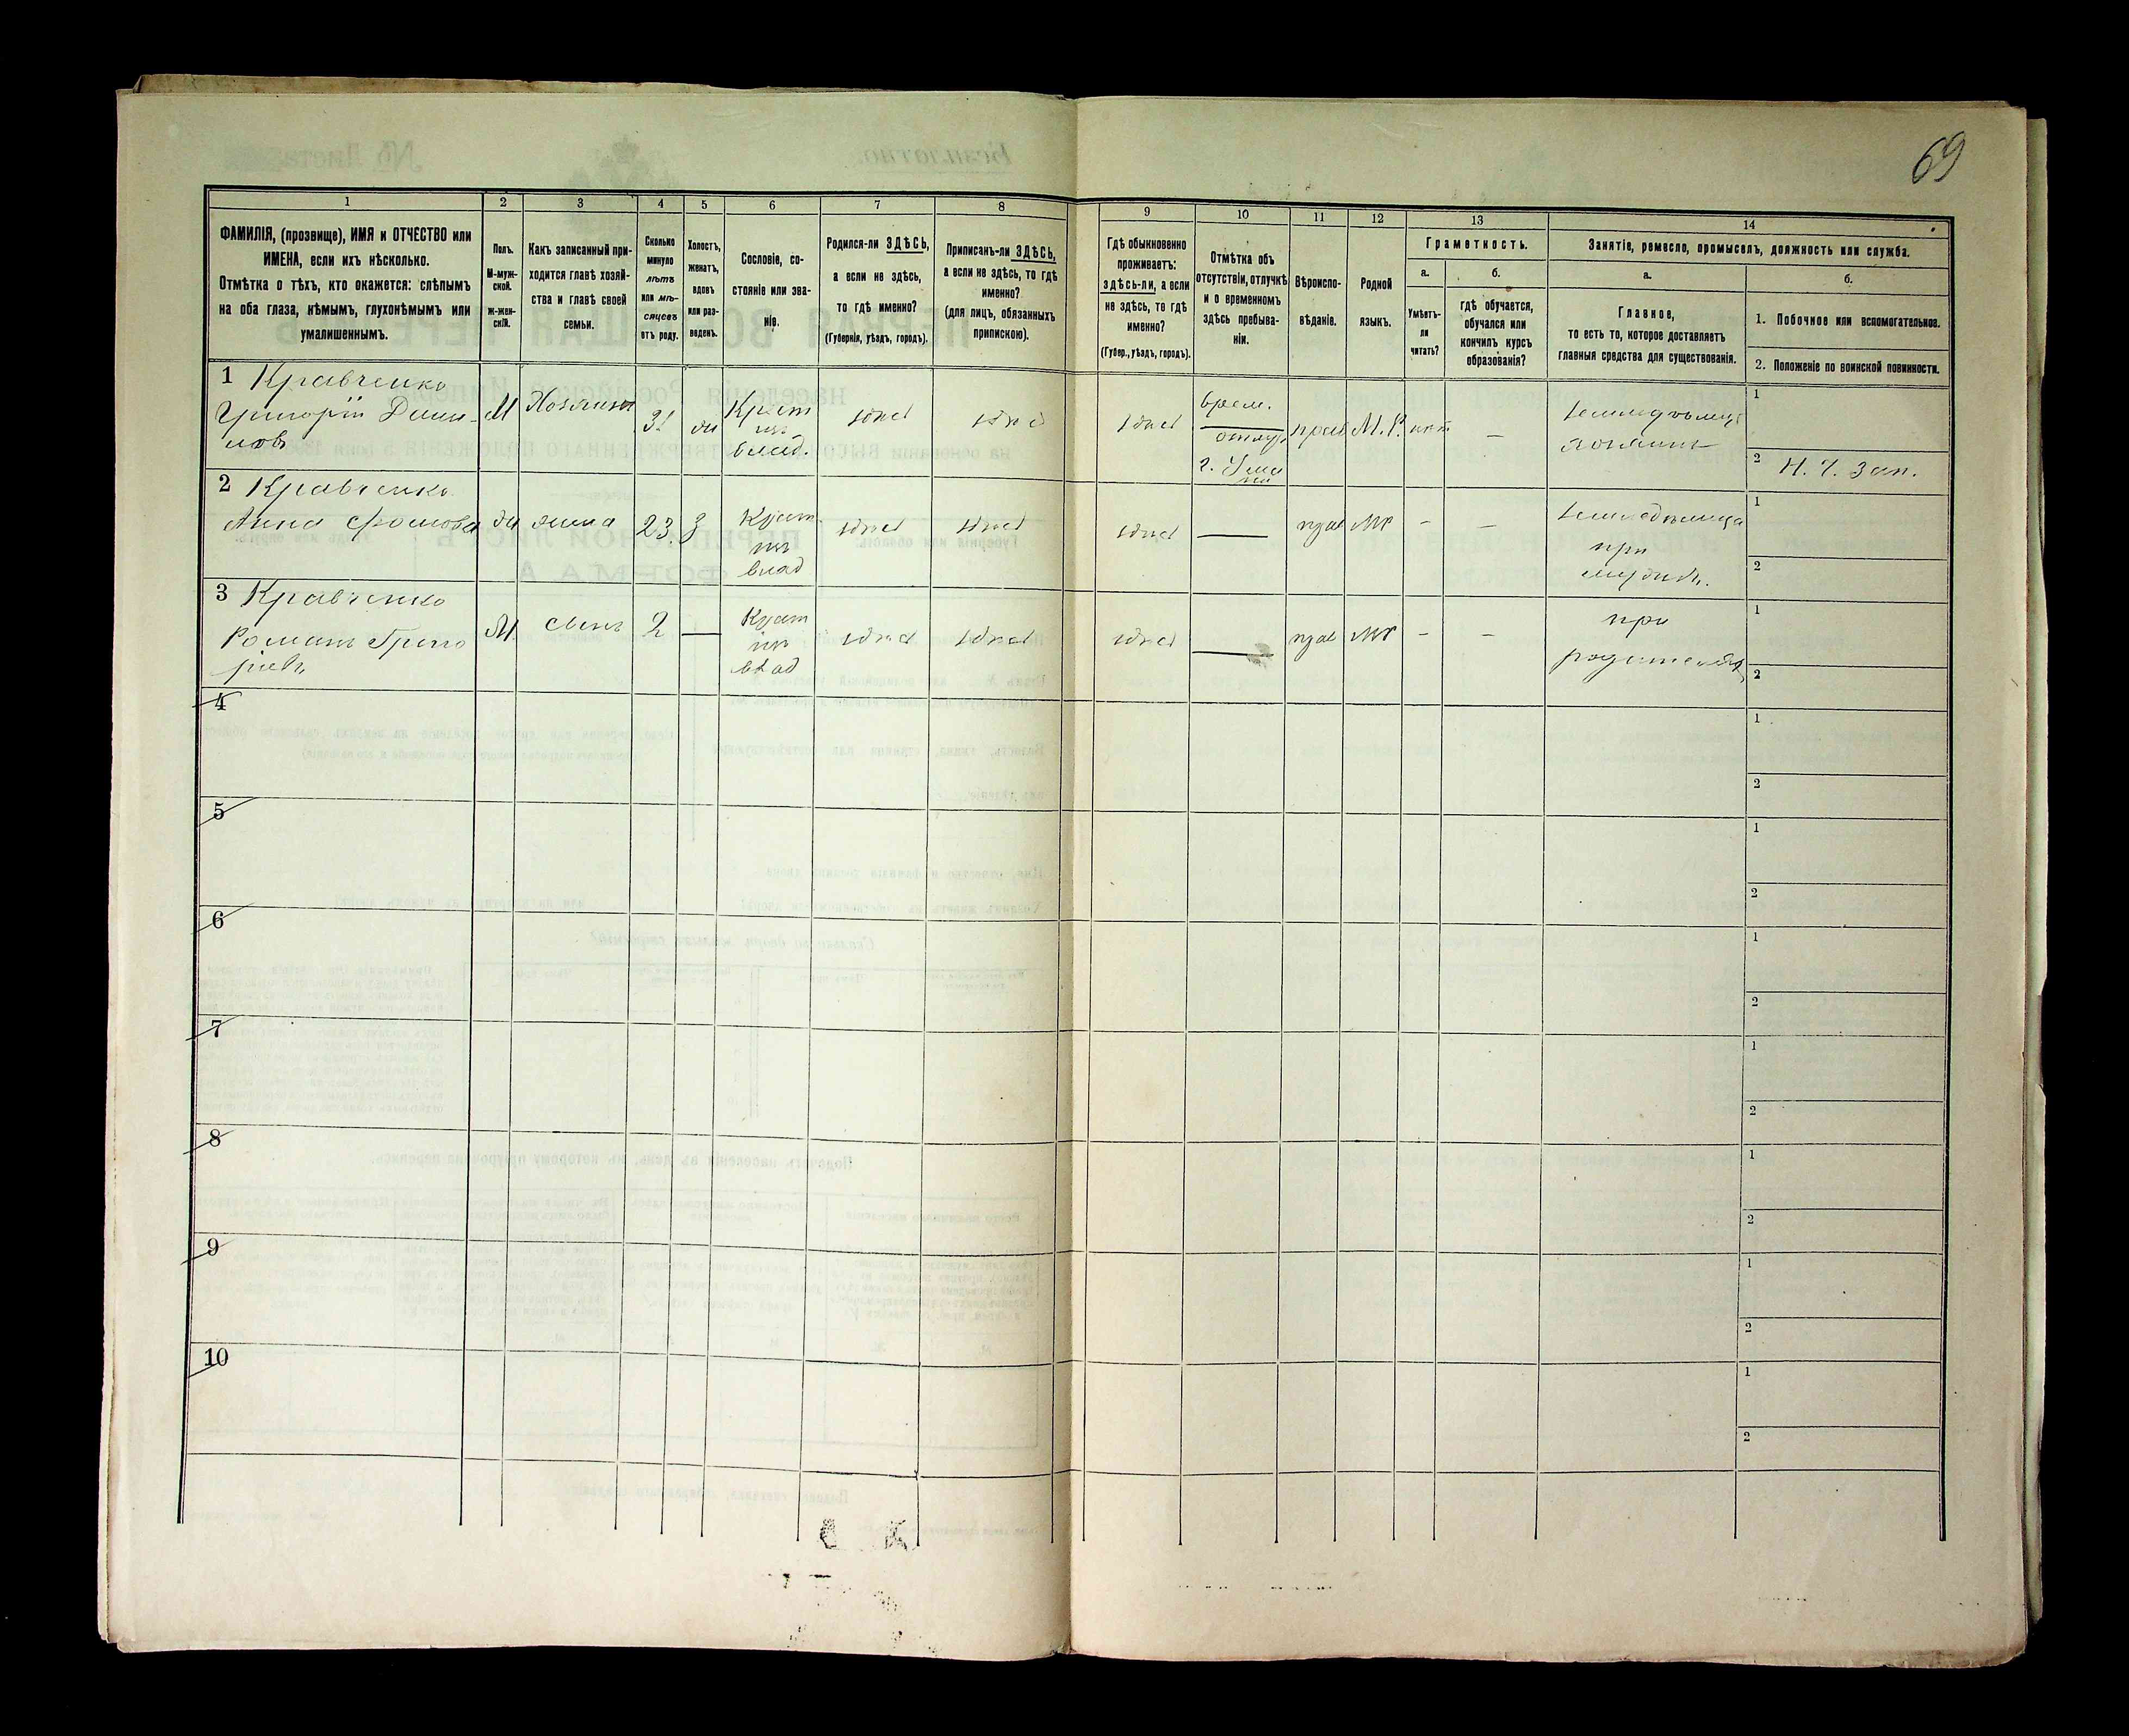 69
1
2
3
4
5
6
7
8
9
10
11
12
13
14
ФАМИЛІЯ, (прозвище), ИМЯ и ОТЧЕСТВО или
ИМЕНА, если ихъ нѣсколько.
Отмѣтка о тѣхъ, кто окажется: слѣпымъ
на оба глаза, нѣмымъ, глухонѣмымъ или
умалишеннымъ.
Полъ.
М-муж-
ской.
Ж-жен-
скій.
Какъ записанный при-
ходится главѣ хозяй-
ства и главѣ своей
семьи.
Сколько
минуло
лѣтъ
или мѣ-
сяцевъ
отъ роду.
Холостъ,
женатъ,
вдовъ
или раз-
веденъ.
Сословіе, со-
стояніе или зва-
ніе.
Родился-ли ЗДѢСЬ,
а если не здѣсь,
то гдѣ именно?
(Губернія, уѣздъ, городъ).
Приписанъ-ли ЗДѢСЬ,
а если не здѣсь, то гдѣ
именно?
(для лицъ, обязанныхъ
припискою).
Гдѣ обыкновенно
проживаетъ:
здѣсь-ли, а если
не здѣсь, то гдѣ
именно?
(Губер., уѣздъ, городъ).
Отмѣтка объ
отсутствіи, отлучкѣ
и о временномъ
здѣсь пребыва-
ніи.
Вѣроиспо-
вѣданіе.
Родной
языкъ.
Грамотность.
а.
Умѣетъ-
ли
читать?
б.
гдѣ обучается,
обучался или
кончилъ курсъ
образованія?
Занятіе, ремесло, промыселъ, должность или служба.
а.
Главное,
то есть то, которое доставляетъ
главныя средства для существованія.
б.
1. Побочное или вспомогательное.
2. Положеніе по воинской повинности.
1 Кравченко
Григорій Дани-
ловъ
М
Хозяинъ
31
жи
Крест
изъ
влад.
здѣсь
здѣсь
здѣсь
врем.
отлуч.
г. Ума
ни
прав
М.Р.
нѣт
—
земледѣлецъ
хозяинъ
1
2 Н. Ч. Зап.
2 Кравченко
Анна Фомова
жи
жена
23
З
Крест.
изъ
влад
здѣсь
здѣсь
здѣсь
—
прав
МР
—
—
земледѣлица
при
мужѣ.
1
2
3 Кравченко
Романъ Григо
ріевъ
М
сынъ
2
—
Крест
изъ
влад
здѣсь
здѣсь
здѣсь
—
прав
МР
—
—
при
родителяхъ
1
2
4
1
2
5
1
2
6
1
2
7
1
2
8
1
2
9
1
2
10
1
2